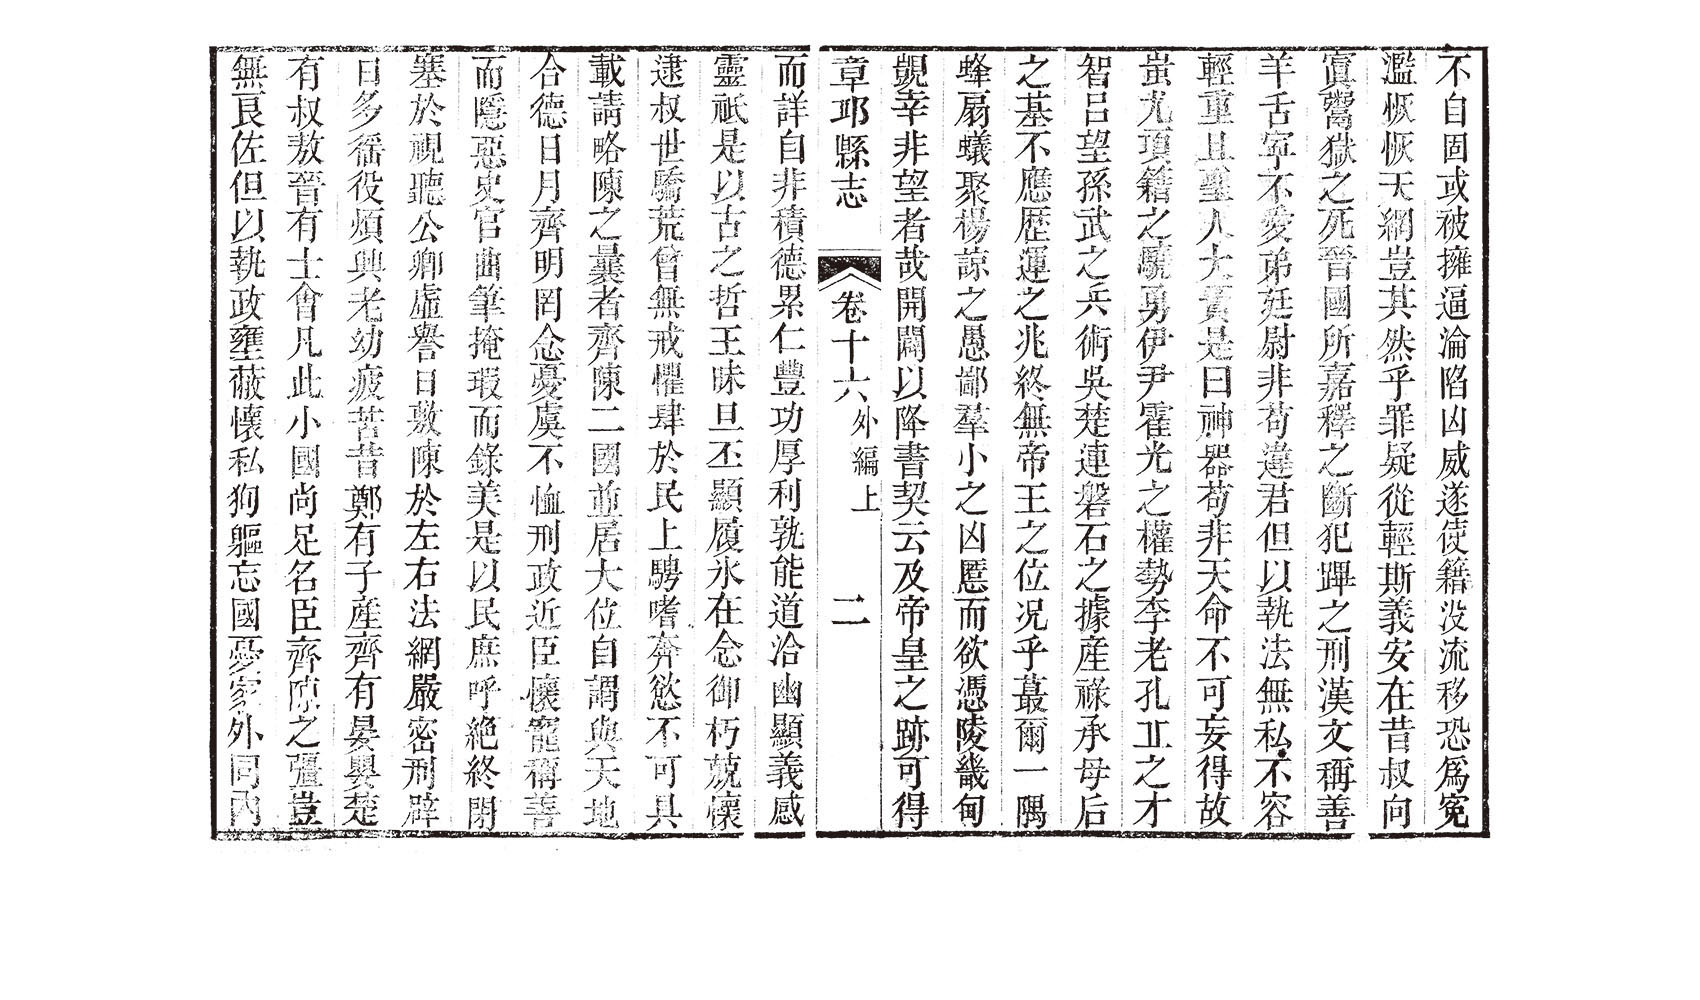 不自固或被擁逼淪陷凶威遂使籍沒流移恐爲冤
濫恢恢天網豈其然乎罪疑從輕斯義安在昔叔向
寘鬻獄之死晉國所嘉釋之斷犯蹕之刑漢文稱善
羊舌寧不愛弟廷尉非苟違君但以執法無私不容
輕重且聖人大寶是曰神器苟非天命不可妄得故
蚩尤項籍之驍勇伊尹霍光之權勢李老孔丘之才
智呂望孫武之兵術吳楚連磐石之據産祿承母后
之基不應歴運之兆終無帝王之位况乎蕞爾一隅
蜂扇蟻聚楊諒之愚鄙羣小之凶慝而欲憑陵畿甸
覬幸非望者哉開闢以降書契云及帝皇之跡可得
章邱縣志
卷十六外編上
二
而詳自非積德累仁豐功厚利孰能道洽幽顯義感
靈祇是以古之哲王昧旦丕顯履氷在念御朽兢懷
逮叔世驕荒曾無戒懼肆於民上騁嗜奔慾不可具
載請略陳之曩者齊陳二國並居大位自謂與天地
合德日月齊明罔念憂虞不恤刑政近臣懷寵稱善
而隱惡史官曲筆掩瑕而錄美是以民庶呼絶終閉
塞於視聽公卿虛譽日敷陳於左右法網嚴密刑辟
日多徭役煩興老幼疲苦昔鄭有子産齊有晏嬰楚
有叔敖晉有士會凡此小國尚足名臣齊陳之疆豈
無良佐但以執政壅蔽懷私狥軀忘國憂家外同內